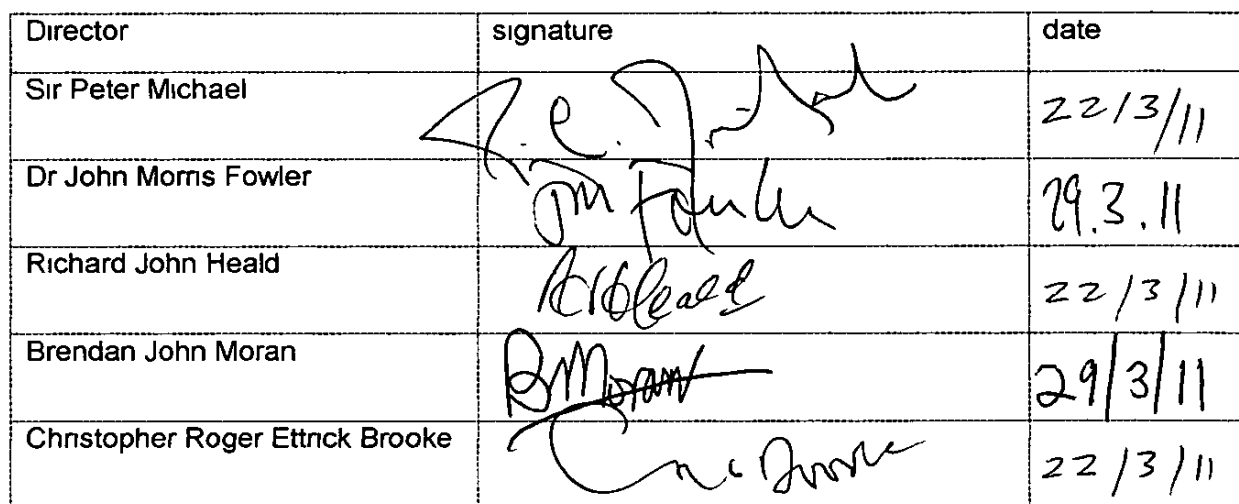 Director signature date
Sir Peter Michael 22/3/11
Dr John Morris Fowler JM Fowler 29.3.11
Richard John Heald RJHeald 22/3/11
Brendan John Moran BMoran 29/3/11
Christopher Roger Ettrick Brooke Brooke 22/3/11